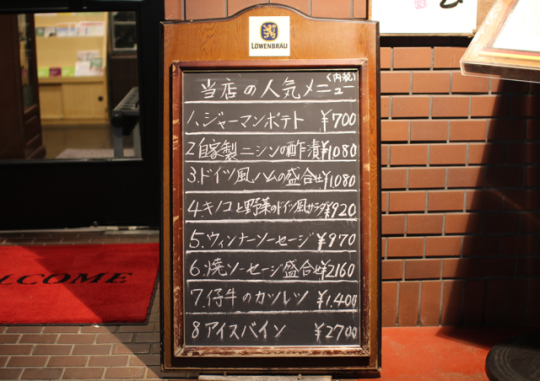 LÖWENBRÄU
当店の人気メニュー(内税)
1.ジャーマンポテト ¥700
2自家製ニシンの酢漬¥1,080
3.ドイツ風ハムの盛合せ¥1,080
4.キノコと野菜のドイツ風サラダ¥920
5.ウィンナーソーセージ¥970
6.焼ソーセージ盛合せ¥2160
7.仔牛のカツレツ ¥1,400
8アイスバイン ¥2700
ELCOME